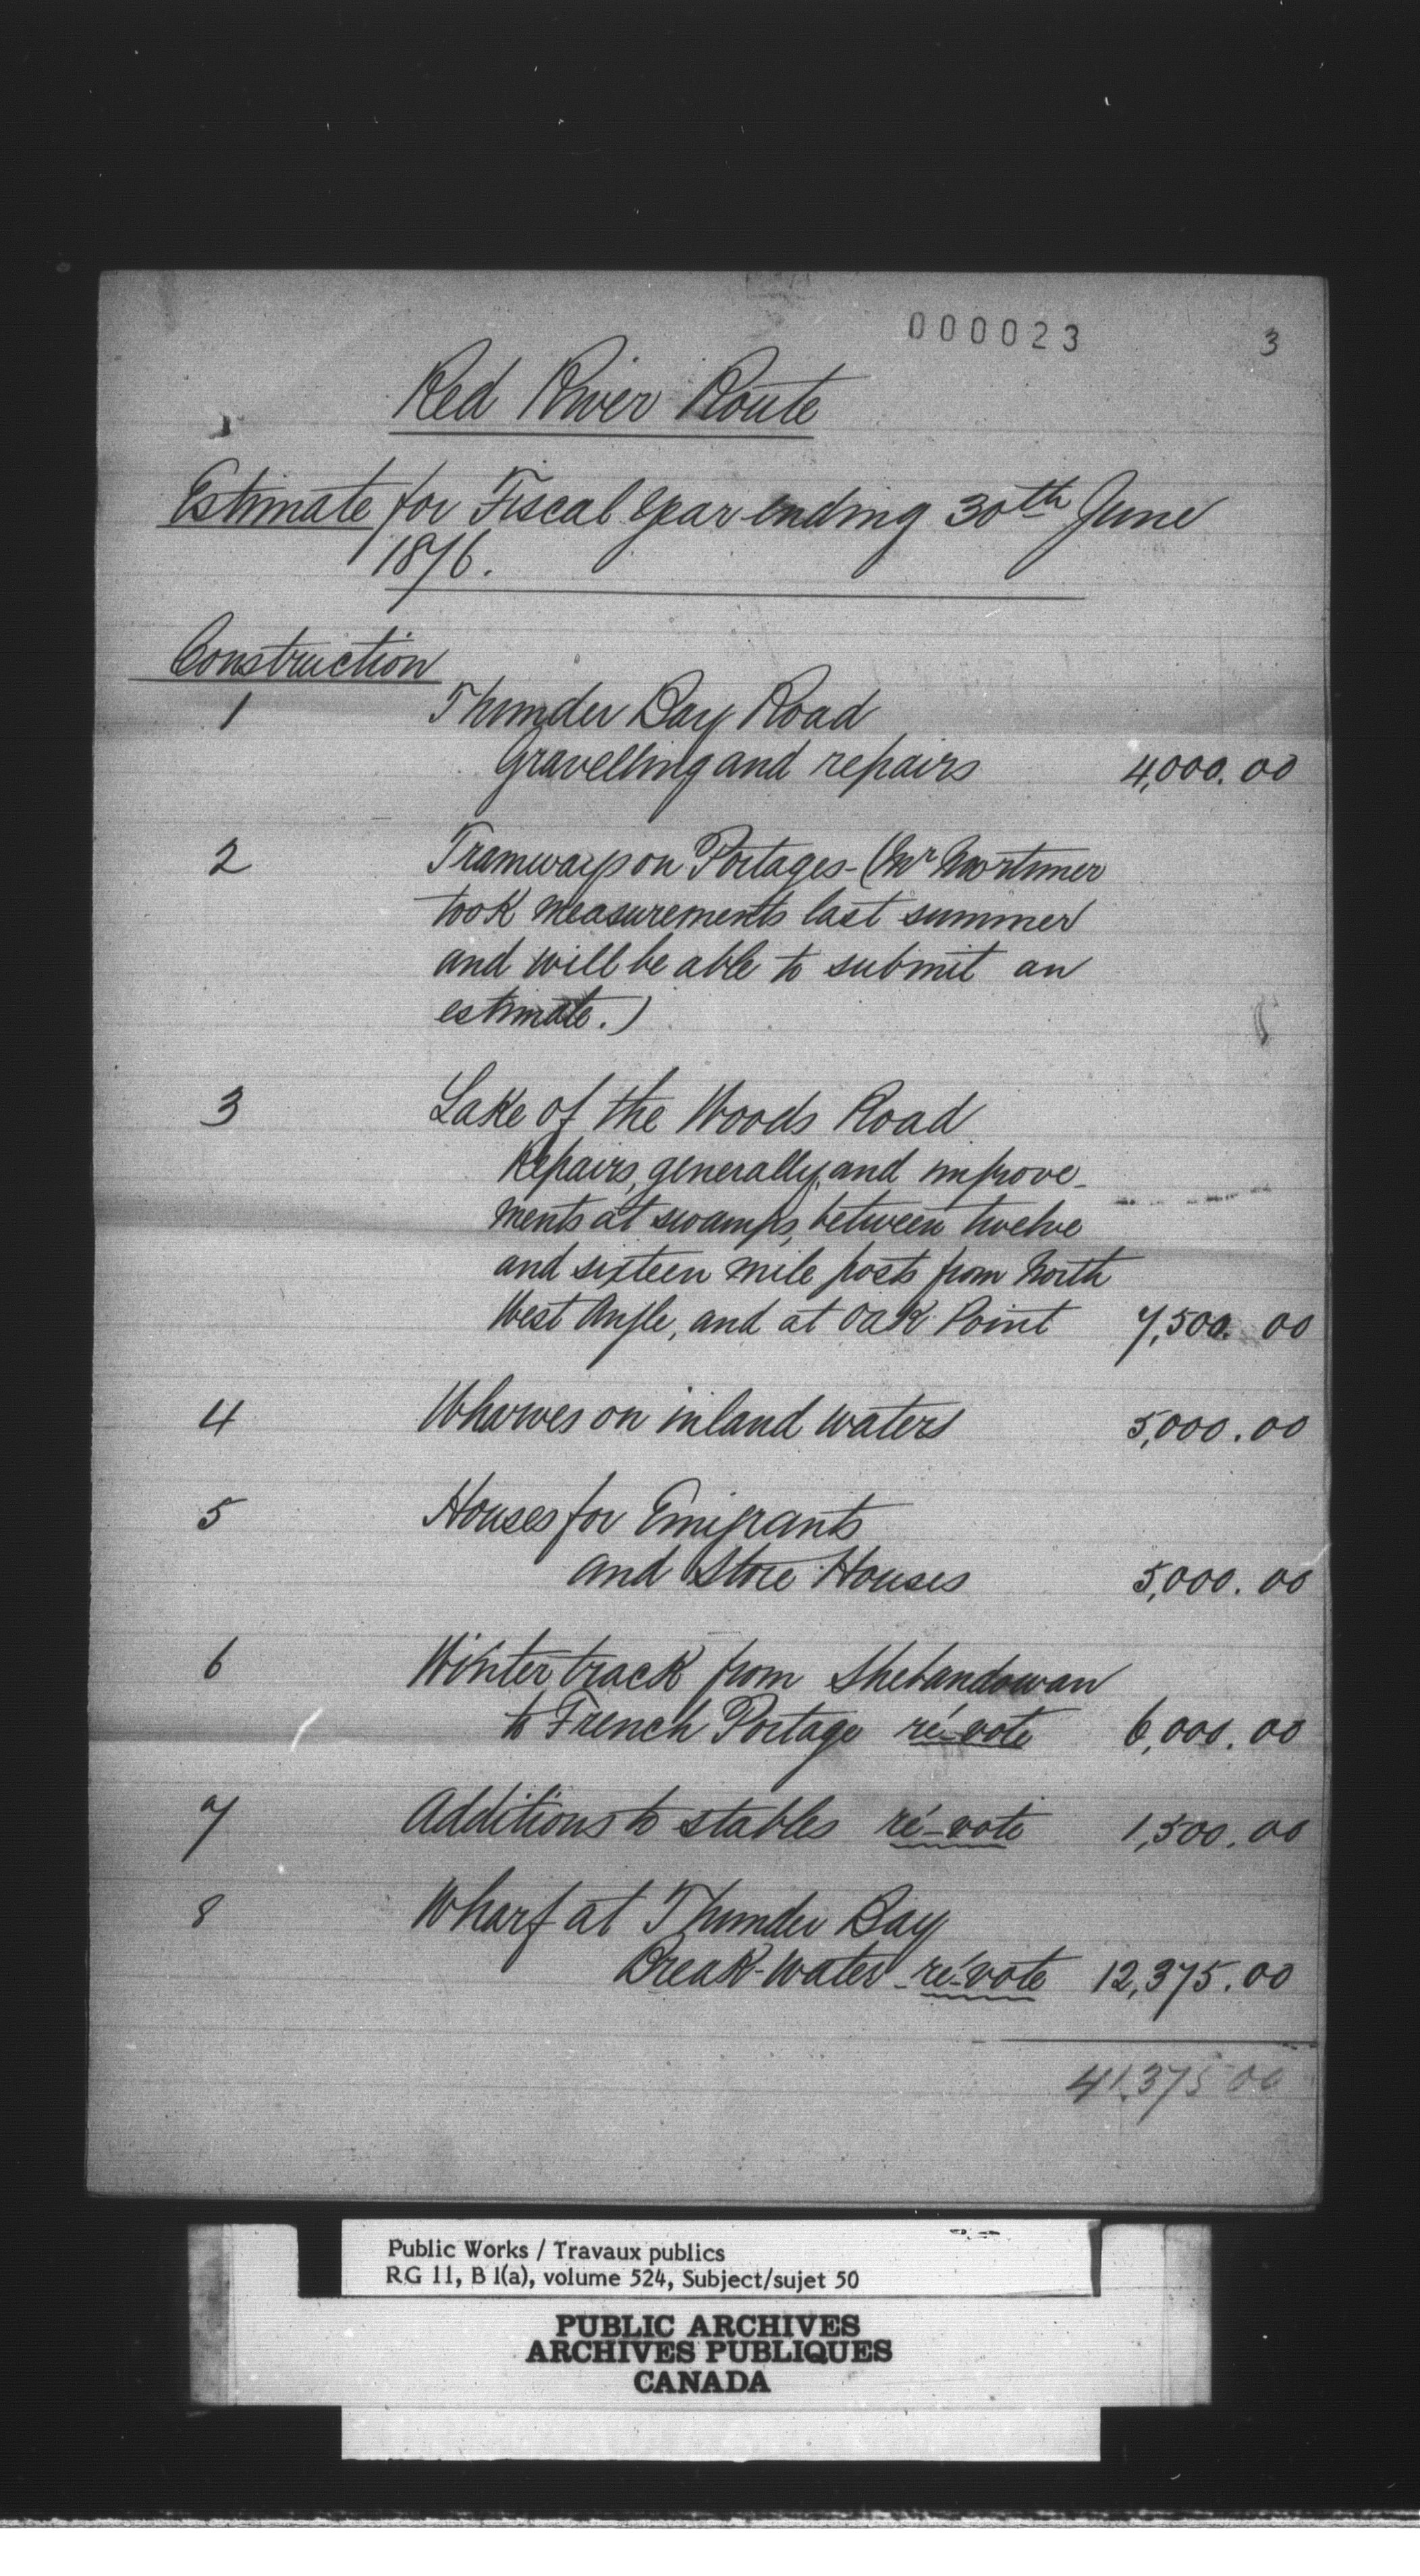 000023 3
Red River Route
Estimate for Fiscal Year ending 30th June
1876.
Construction
1 Thunder Bay Road
Gravelling and repairs 4,000.00
2 Tramways on Portages - (Mr Mortimer
took measurements last summer
and will be able to submit an
estimate.)
3 Lake of the Woods Road
Repairs, generally, and improve-
ments at swamps, between twelve
and sixteen mile posts from North
West Angle, and at Oak Point 7,500.00
4 Wharves on inland waters 5,000.00
5 Houses for Emigrants
and Store Houses 5,000.00
6 Winter track from Shebandowan
to French Portage ré-vote 6,000.00
7 Additions to stables ré-vote 1,500.00
8 Wharf at Thunder Bay
Break-water - ré-vote 12,375.00
41,375 00
Public Works / Travaux publics
RG 11, B 1(a), volume 524, Subject/sujet 50
PUBLIC ARCHIVES
ARCHIVES PUBLIQUES
CANADA